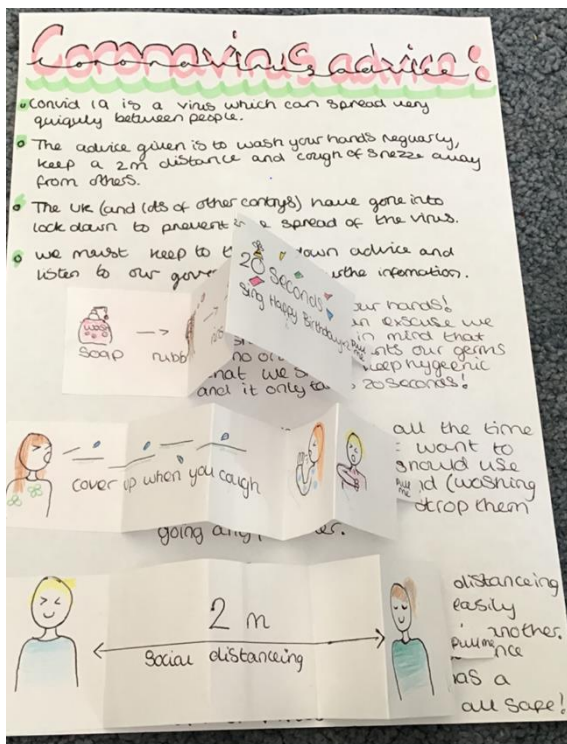 Coronavirus advice!
Convid 19 is a virus which can spread very
quiquly between people.
The advice given is to wash your hands reguarly,
keep a 2m distance and cough of snezze away
from others.
The UK (and lots of other contrys) have gone into
lock down to prevent a spread of the virus.
we must keep to down advice and
listen to our the infomation.
20 seconds
Sing Happy Birthday
pull me
wash
soap
our hands!
an excuse we
in mind that
our germs
keep hygeenic
and it only 20 seconds!
all the time
want to
should use
(washing
pull me
strop them
cover up when you cough
going any
distanceing
easily
another.
pull me
2 m
social distanceing
as a
all safe!